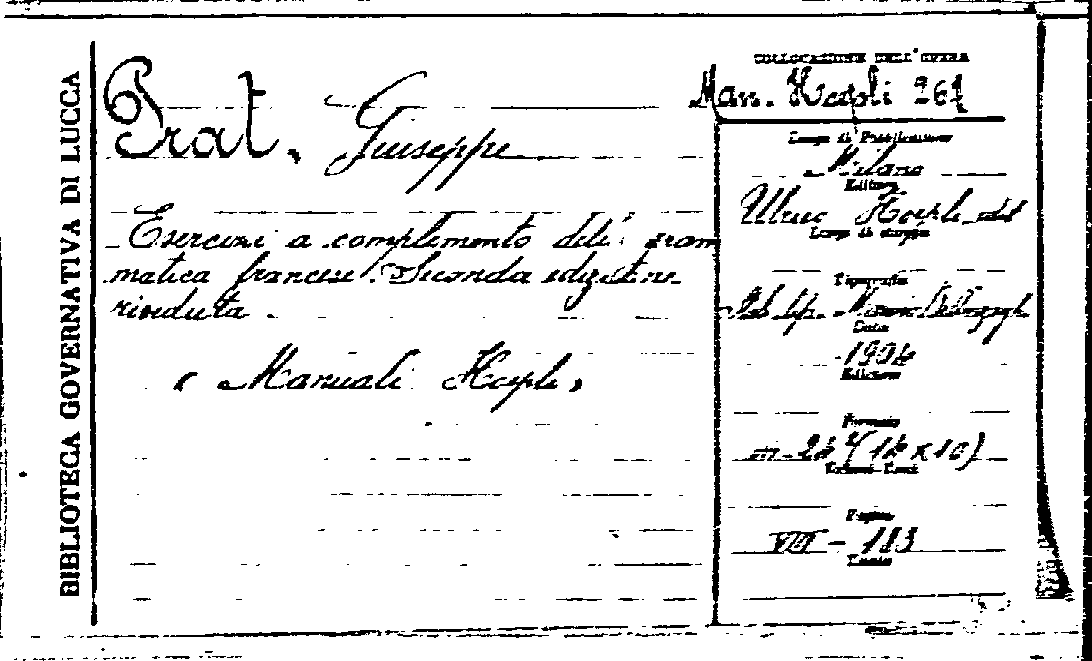 BIBLIOTECA GOVERNATIVA DI LUCCA
Prat, Giuseppe
Esercizi a complemento della gram
matica francese. Seconda edizione
riveduta.
"Manuali Hoepli"
COLLOCAZIONE DELL'OPERA
Man. Hoepli 261
Luogo di Pubblicazione
Milano
Editore
Ulrico Hoepli
Luogo di stampa
Tipografia
Data
Edizione
Formato
in-24° (14 x 10)
Volumi
Pagine
VIII - 183